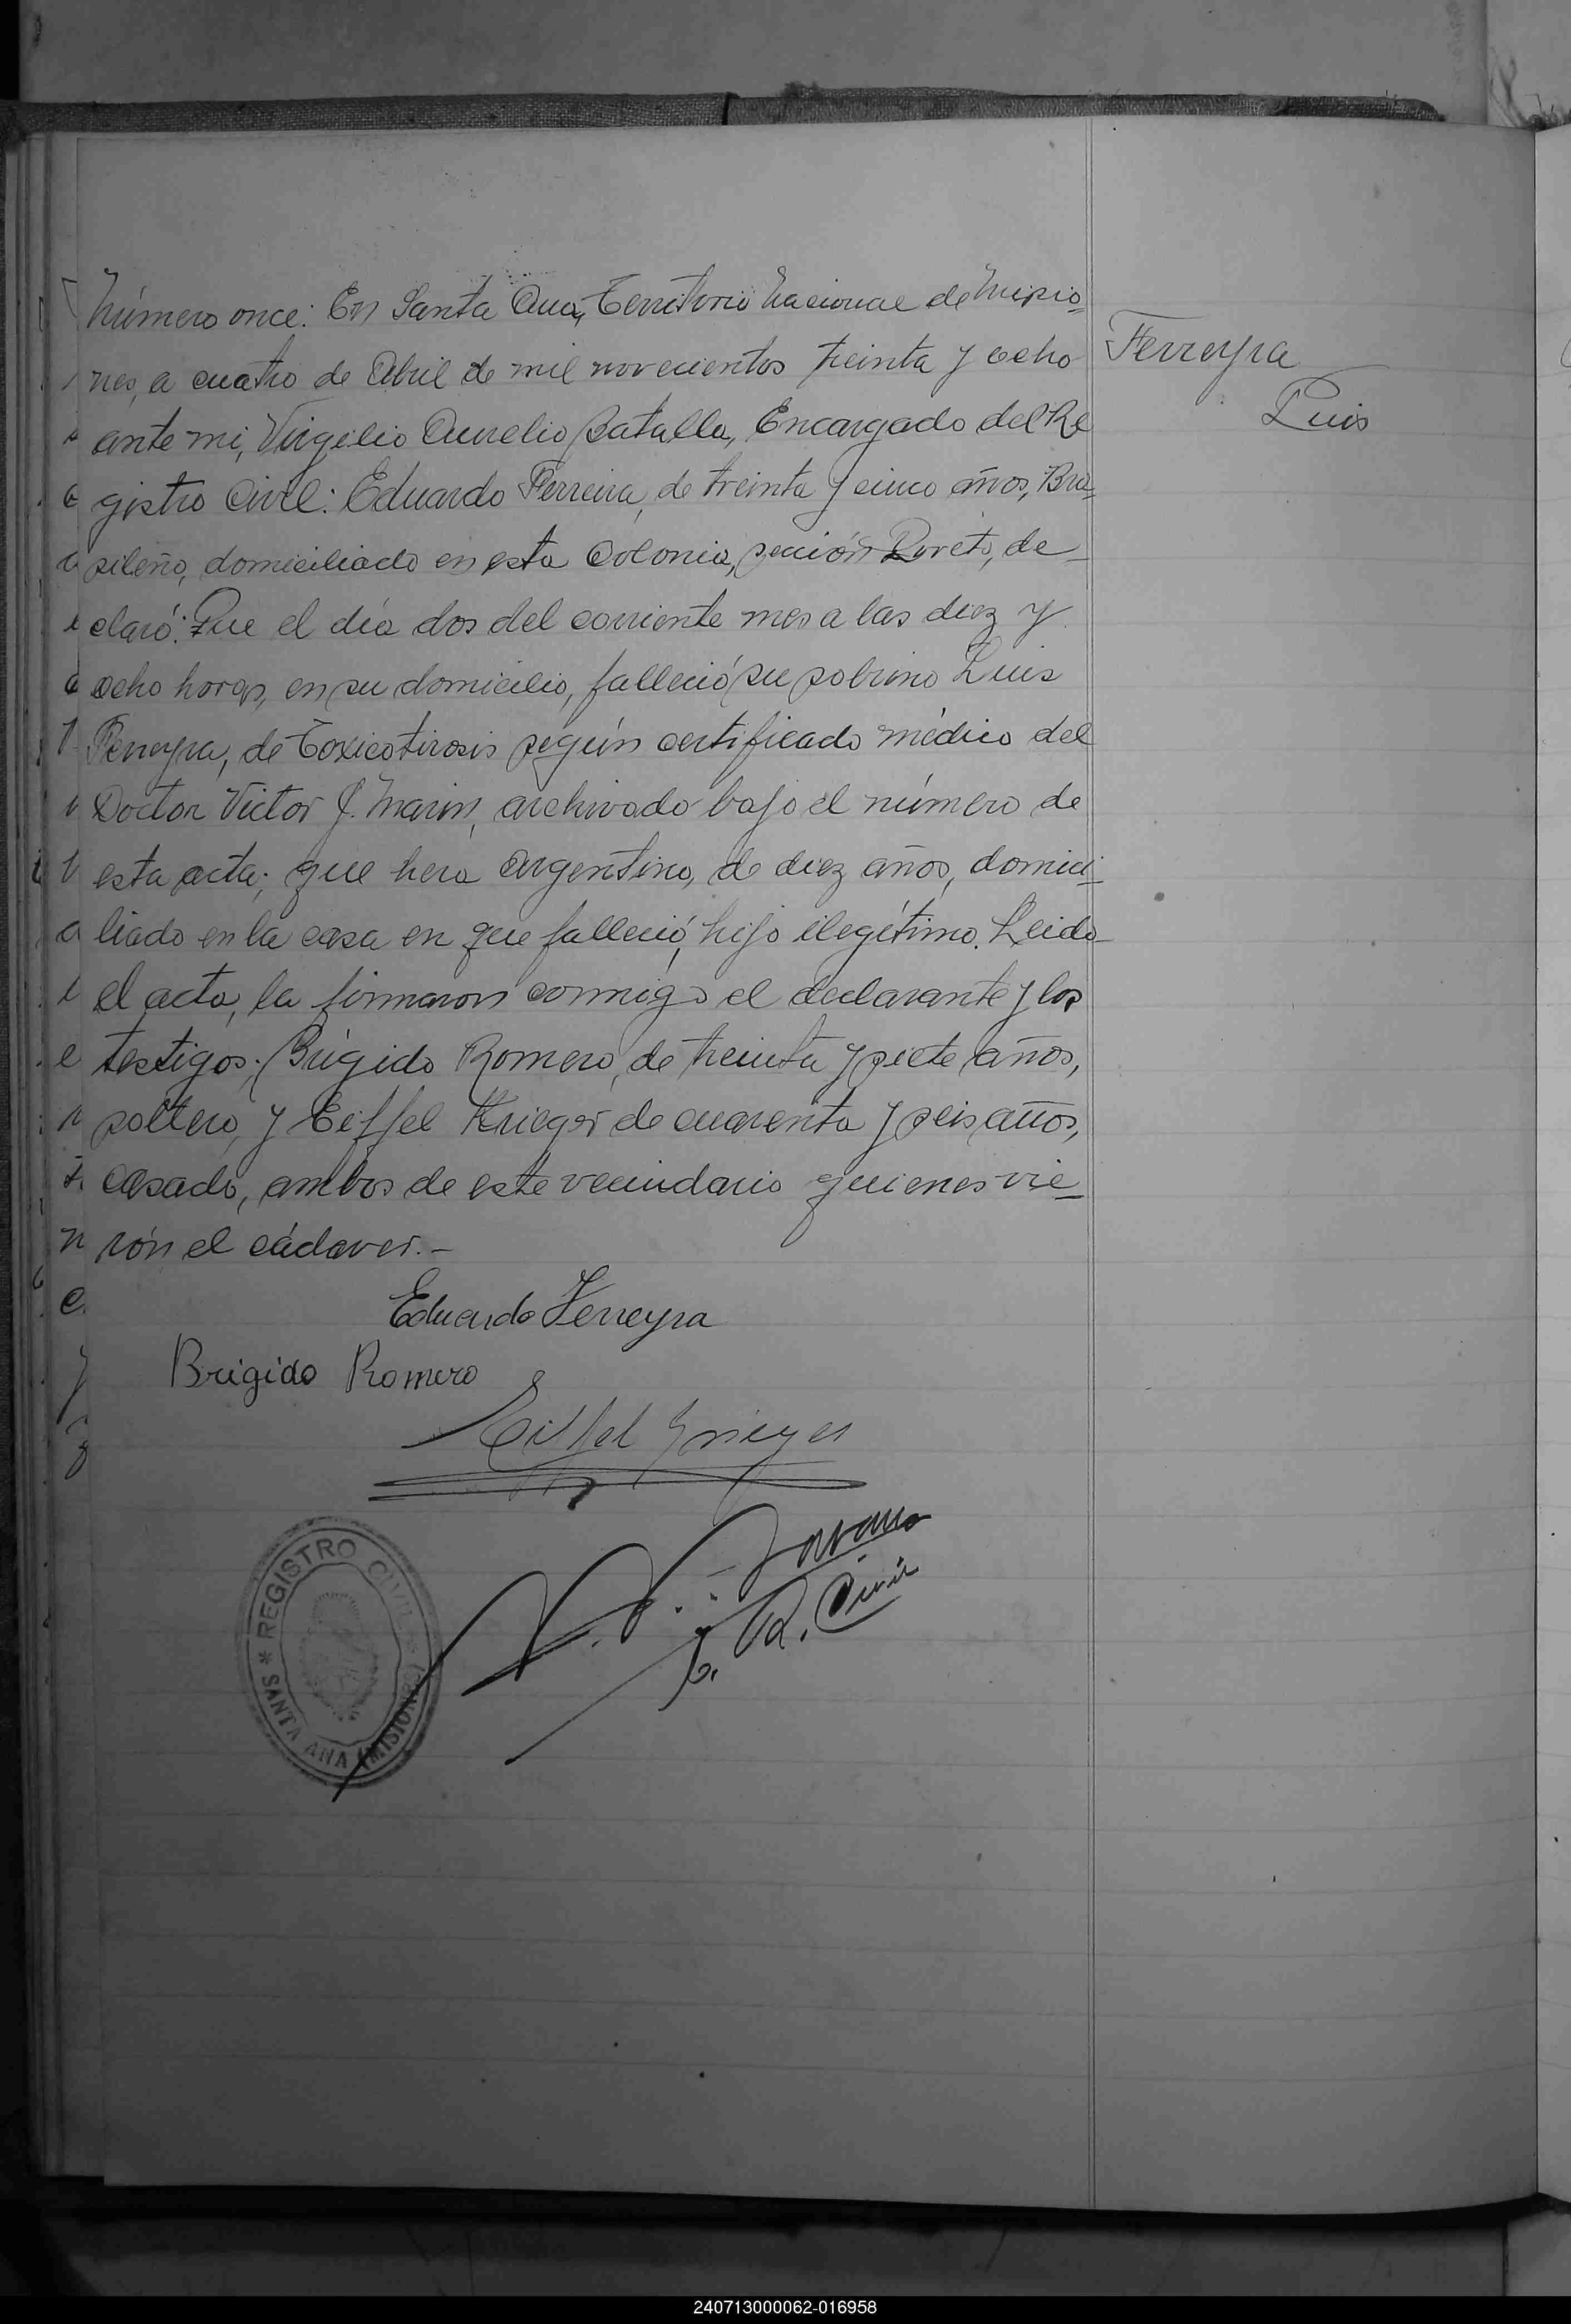 Número once: En Santa Ana, Territorio Nacional de Misio=
nes, a cuatro de Abril de mil novecientos treinta y ocho
ante mi, Virgilio Aurelio Batalla, Encargado del Re
gistro Civil: Eduardo Ferreira, de treinta y cinco años, Bra=
sileño, domiciliado en esta Colonia, sección Loreto, de-
claró: Que el día dos del corriente mes a las diez y
ocho horas, en su domicilio, falleció su sobrino Luis
Ferreyra, de Toxicotirosis según certificado médico del
Doctor Victor J. Marin, archivado bajo el número de
esta acta; que hera Argentino, de diez años, domici-
liado en la casa en que falleció, hijo ilegítimo. Leida
el acta, la firmaron conmigo el declarante y los
testigos; Brigido Romero, de treinta y siete años,
soltero, y Eiffel Krieger de cuarenta y seis años,
casado, ambos de este vecindario quienes vie-
rón el cádaver.-
Ferreyra
Luis
Eduardo Ferreyra
Brigido Romero
Eiffel Krieger
R. Civil
REGISTRO CIVIL
* SANTA ANA (MISIONES)
240713000062-016958